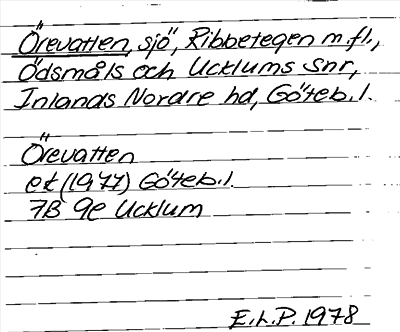 Örevatten, sjö, Ribbetegen m.fl.,
Ödsmåls och Ucklums snr,
Inlands Nordre hd, Göteb.l.
Örevatten
ek (1977) Göteb.l.
7B 9e Ucklum
E.L.P. 1978